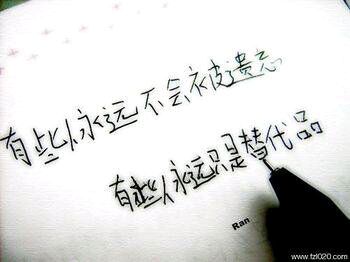 有些人永远不会被遗忘
有些人永远只是替代品
Ran
www.tzl020.com